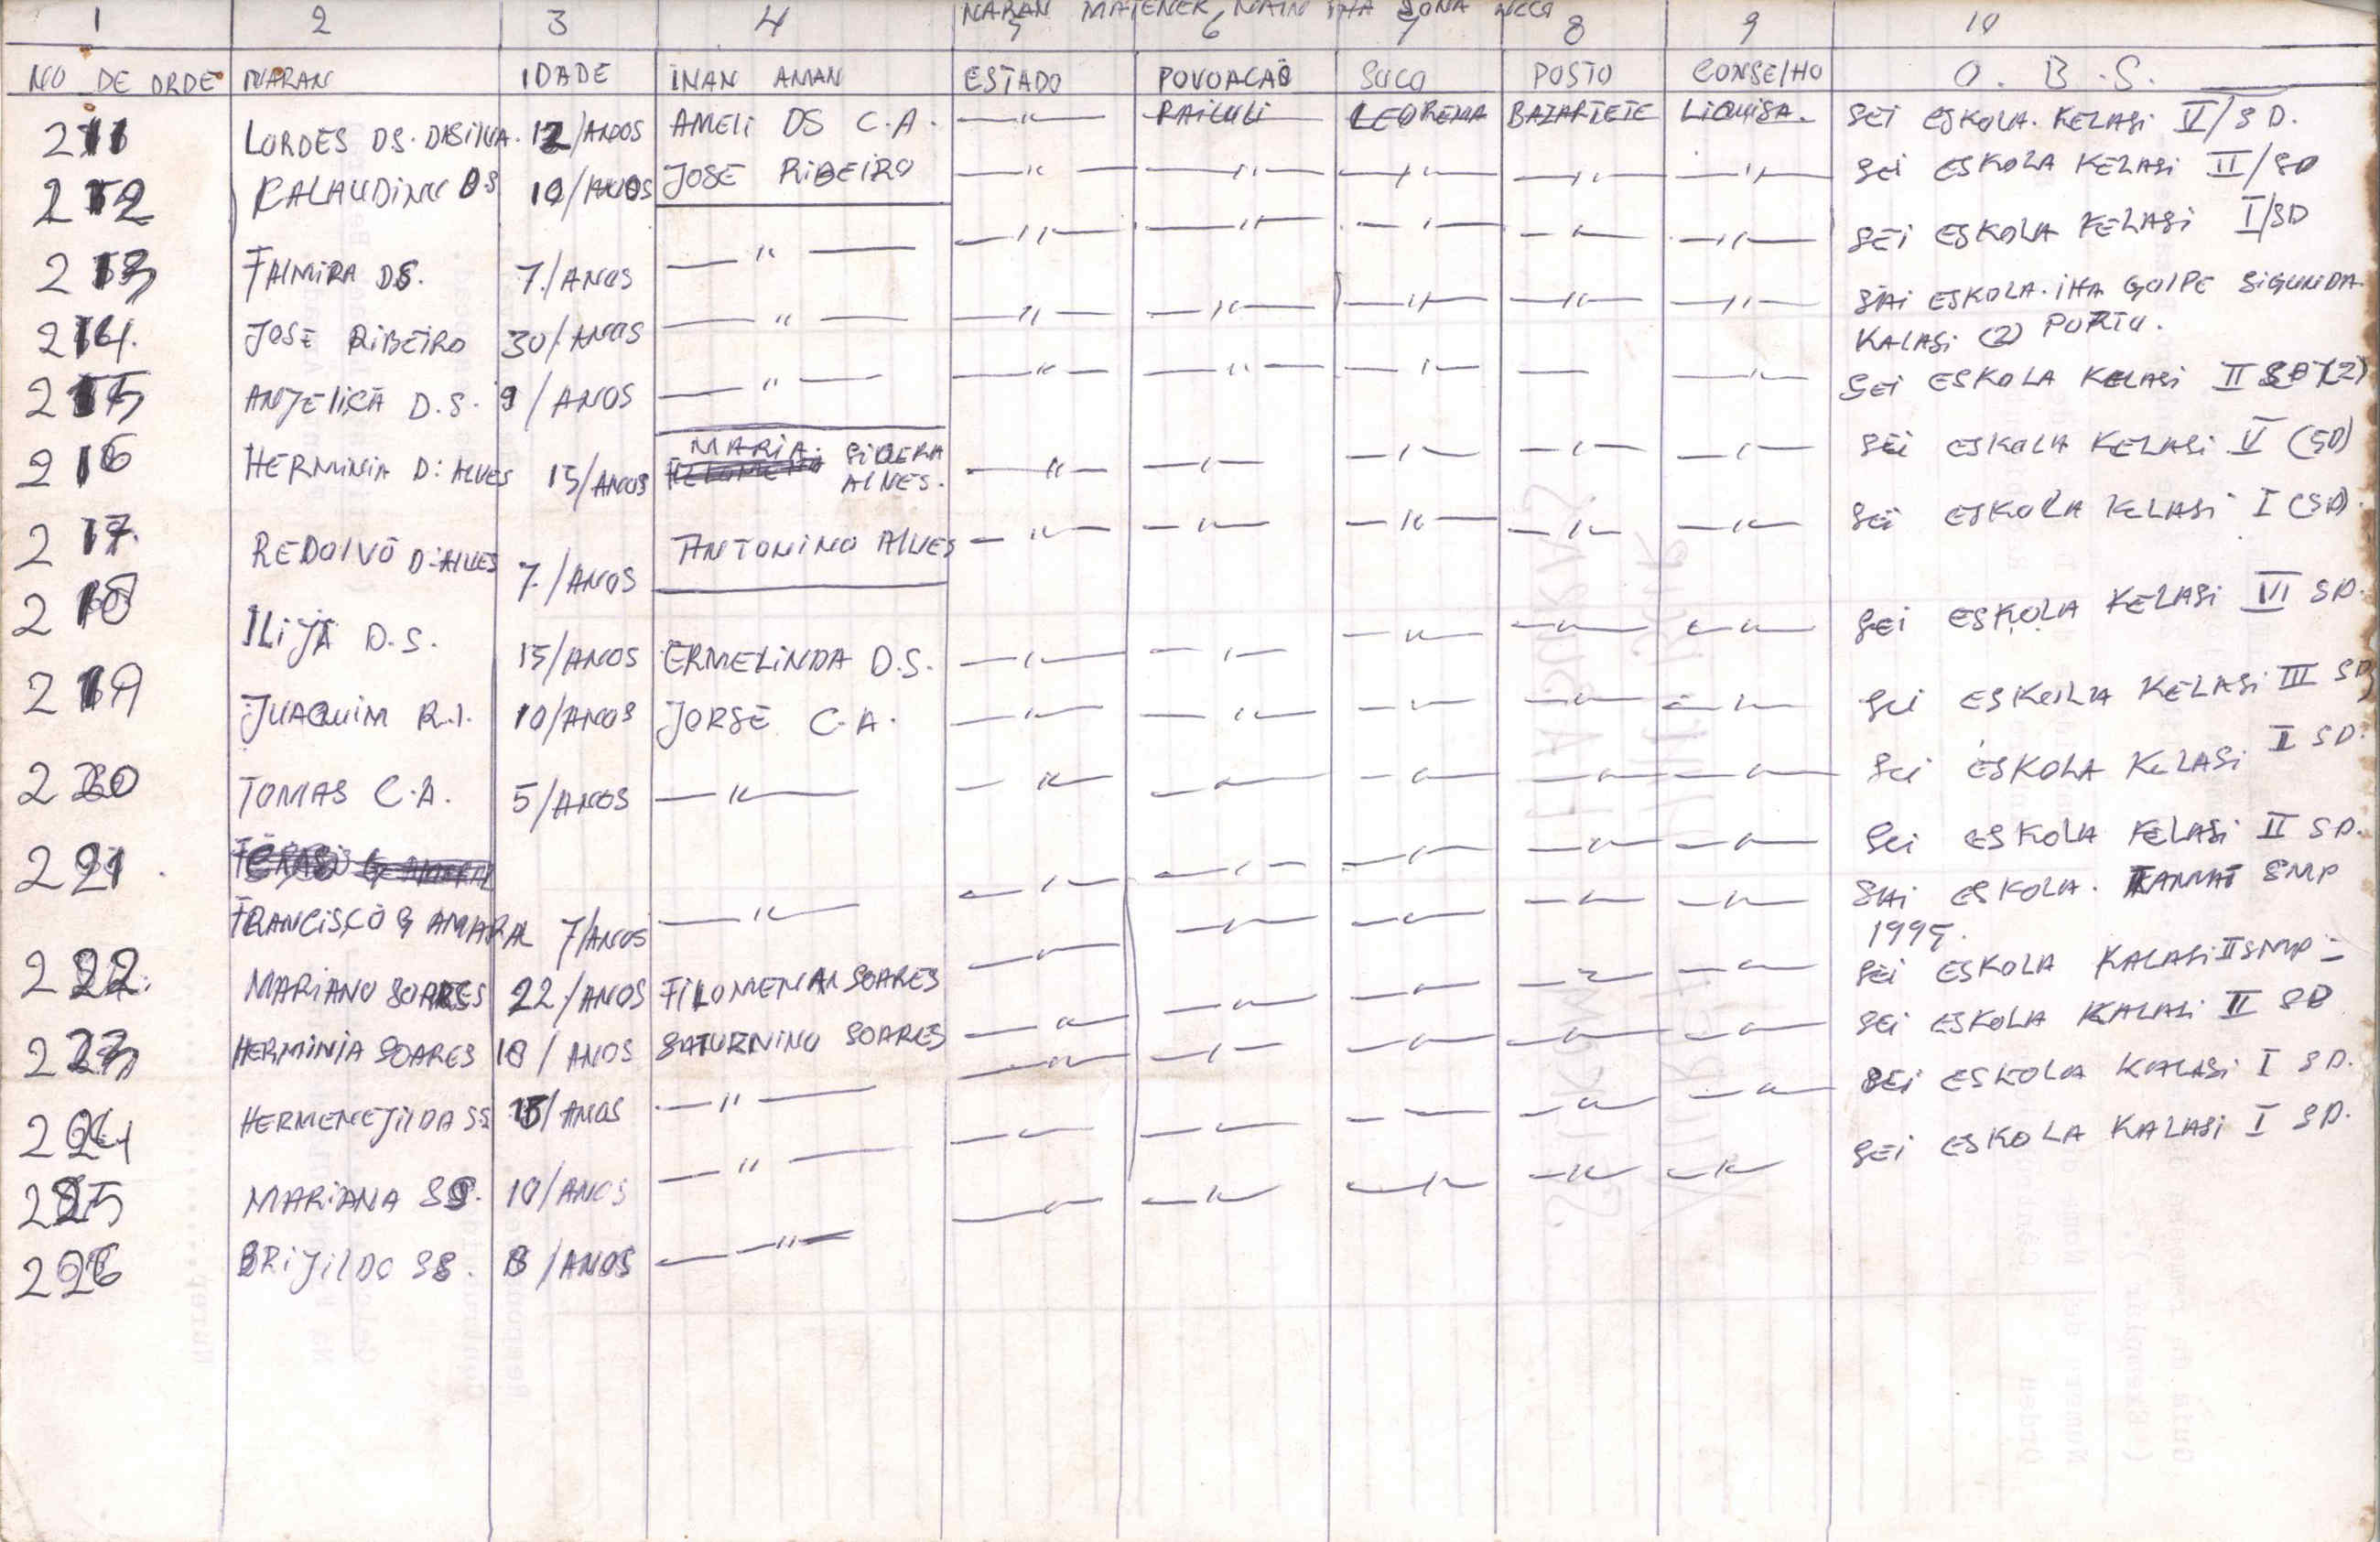 NARAN MATENEK NAIN IHA ZONA
1 2 3 4 5 6 7 8 9 10
NO DE ORDE NARAN IDADE INAN AMAN ESTADO POVOACAÕ SUCO POSTO CONSELHO O. B. S.
211 LORDES DS. DASILVA. 12/ANOS AMELI DS C.A. —"— RAILULI LEOREMA BAZARTETE LIQUISA. SEI ESKOLA. KELASI V/SD.
212 KALAUDINU DS 10/ANOS JOSE RIBEIRO —"— —"— —"— —"— —"— SEI ESKOLA KELASI II/SD
213 FALMIRA DS. 7./ANOS —"— —"— —"— —"— —"— —"— SEI ESKOLA KELASI I/SD
214. JOSE RIBEIRO 30/ANOS —"— —"— —"— —"— —"— —"— SAI ESKOLA. IHA GOLPE SIGUNDA.
KALASI (2) PORTU.
215 ANJELICA D.S. 9/ANOS —"— —"— —"— —"— — —"— SEI ESKOLA KELASI II SD (2)
216 HERMINIA D: ALVES 15/ANOS MARIA. SIQERA
ALVES. —"— —"— —"— —"— —"— SEI ESKOLA KELASI V (SD)
217. REDOLVO D. ALVES 7./ANOS ANTONINO ALVES —"— —"— —"— —"— —"— SEI ESKOLA KELASI I (SD).
218 ILIJA D.S. 15/ANOS ERMELINDA D.S. —"— —"— —"— —"— —"— SEI ESKOLA KELASI VI SD.
219 JUAQUIM R.I. 10/ANOS JORSE C.A. —"— —"— —"— —"— —"— SEI ESKOLA KELASI III SD
220 TOMAS C.A. 5/ANOS —"— —"— —"— —"— —"— —"— SEI ESKOLA KELASI I SD.
221. FRANCISCO G AMARAL 7/ANOS —"— —"— —"— —"— —"— —"— SEI ESKOLA KELASI II SD.
222. MARIANO SOARES 22/ANOS FILOMENA M SOARES —"— —"— —"— —"— —"— SAI ESKOLA. TAMAT SMP
1995.
223 HERMINIA SOARES 18/ANOS SATURNINO SOARES —"— —"— —"— —"— —"— SEI ESKOLA KALASI II SMP -
224 HERMENEJILDA SS 15/ANOS —"— —"— —"— —"— —"— —"— SEI ESKOLA KALASI II SD
225 MARIANA SS. 10/ANOS —"— —"— —"— —"— —"— —"— SEI ESKOLA KALASI I SD.
226 BRIJILDO SS. 8/ANOS —"— —"— —"— —"— —"— —"— SEI ESKOLA KALASI I SD.